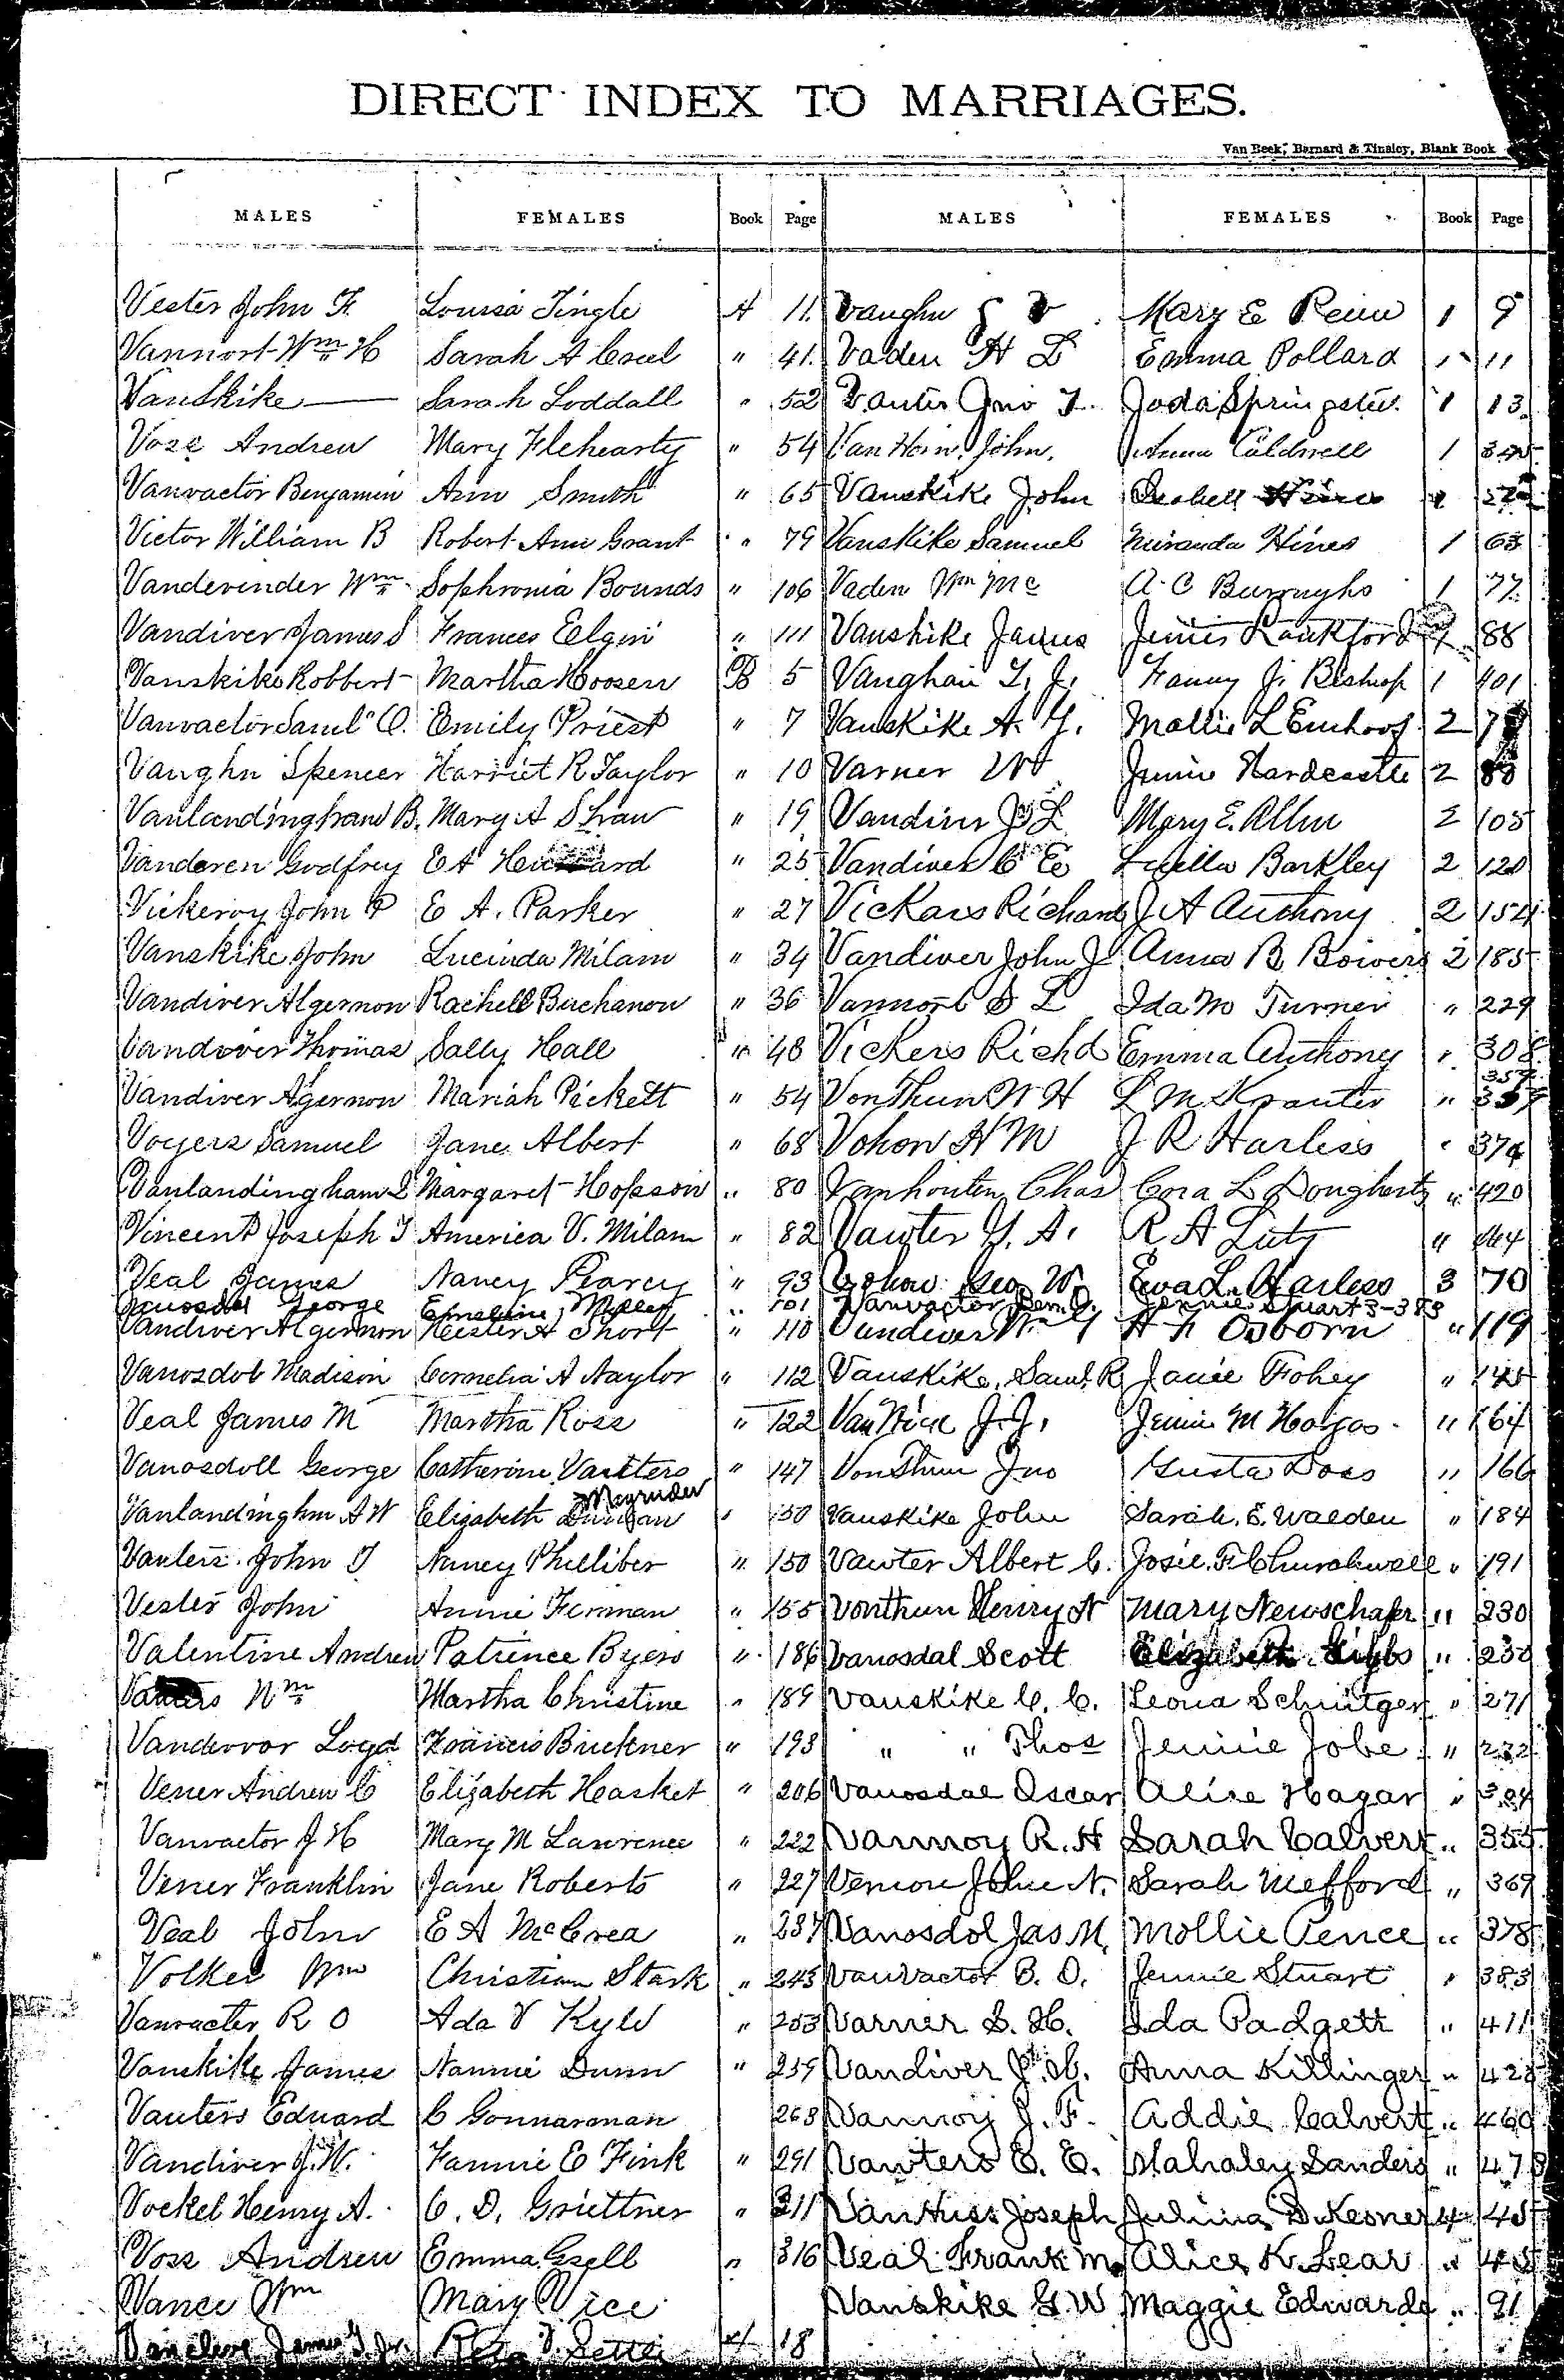 DIRECT INDEX TO MARRIAGES.
Van Beek, Barnard & Tinsley, Blank Book
MALES FEMALES Book Page MALES FEMALES Book Page
Vester John F. Louisa Tingle A 11. Vaughn Mary E 1 9
Vannort Wm H Sarah A " 41. Vaden H L Emma Pollard 1 11
VanSkike — Sarah Loddall " 52 Jno T. Joda 1 13
Vose Andrew Mary Flehearty " 54 Van Horn John. Anna Caldwell 1
Vanvactor Benjamin Ann Smith " 65 Vanskike John
Victor William B Robert Ann Grant " 79 Vanskike Samuel Miranda Hines 1 63
Vandevinder Wm Sophronia Bounds " 106 Vaden Wm Mc A. C Burroughs 1 77
Vandiver James S Frances Elgin " 111 Vanskike James Jennie Lankford 88
Vanskike Robbert Martha Hoosen B 5 Vaughan T. J. Fanny J. Bishop 1 401
Vanvactor Saml O. Emily Priest " 7 Vanskike A. Y. Mollie L 2
Vaughn Spencer Harriet R Taylor " 10 Varner Jennie Hardcastle 2
Vanlandingham B. Mary A Shaw " 19 Vandiver J L Mary E. Allen 2 105
Vanderen Godfrey E A " 25 Vandiver C E Luella Barkley 2 120
Vickeroy John P E A. Parker " 27 Vickars Richard J A Anthony 2 154
Vanskike John Lucinda Milam " 34 Vandiver John J Anna B Bowers 2 185
Vandiver Algernon Rachell Buchanon " 36 Vannort S L Ida M Turner " 229
Vandiver Thomas Sally Hall " 48 Vickers Richd Emma Anthony " 308
Vandiver Agernon Mariah Pickett " 54 VonThun W H L M Krauter " 357
Voyers Samuel Jane Albert " 68 Vohon H M J R Harless " 374
Vanlandingham Margaret Hopson " 80 Vanhouten Chas Cora L Dougherty " 420
Vincent Joseph T America V. Milam " 82 Vawter Y. A. R A Lutz " 444
Veal James Nancy Pearcy " 93 Vohow Geo W. Eva L. Harless 3 70
Vanosdol George Miller " 101 Vanvactor Ben. O. Jennie Stuart 3-383
Vandiver Algernon Hester A Short " 110 Vandiver Wm H Osborn " 119
Vanosdol Madison Cornelia A Naylor " 112 Vanskike, Saml. R Janie Fohey " 145
Veal James M Martha Ross " 122 J. J. Jennie M " 164
Vanosdoll George Catherine Vauters " 147 VonThun Jno Gusta Doss " 166
Magruder
Vanlandinghm A W Elizabeth " 150 Vanskike John Sarah. E. Walden " 184
Vauters John T Nancy Philliber " 150 Vawter Albert C. Josie. F Churchwell " 191
Vester John Annie Ferman " 155 Vonthun Henry N Mary Newschafer " 230
Valentine Andrew Patience Byers " 186 Vanosdal Scott Elizabeth Gibbs " 230
Vauters Wm Martha Christine " 189 Vanskike C. C. Leona " 271
Vandervor Loyd Francis Buckner " 193 " " Thos Jennie Jobe "
Vener Andrew C Elizabeth Hasket " 206 Vanosdal Oscar Alice Hagar " 324
Vanvactor J H Mary M Lawrence " 222 Vannoy R. H Sarah Calvert " 355
Vener Franklin Jane Roberts " 227 Vernon John N. Sarah Mefford " 369
Veal John E A McCrea " 237 Vanosdol Jas M. Mollie Pence " 378
Volker Wm Christian Stark " 243 Vanvactor B. O. Jennie Stuart " 383
Vanvacter R O Ada V Kyle " 253 Varner S. H. Ida Padgett " 411
Vanskike James Nannie Dunn " 259 Vandiver J. H. Anna Killinger " 423
Vauters Edward C Gonnarman 268 Vannoy J. F. Addie Calvert " 460
Vandiver J. W. Fannie E Fink " 291 Vawters E. E. Mahaley Sanders " 478
Vockel Henry A. C. D. Griettner " 311 VanHuss Joseph Julina D Kesner 4 45
Voss Andrew Emma Gsell " 316 Veal Frank M. Alice K. Lear " 45
Vance Wm Mary Vice Vanskike G. W Maggie Edwards " 91
Vancleve James T. Jr. 18